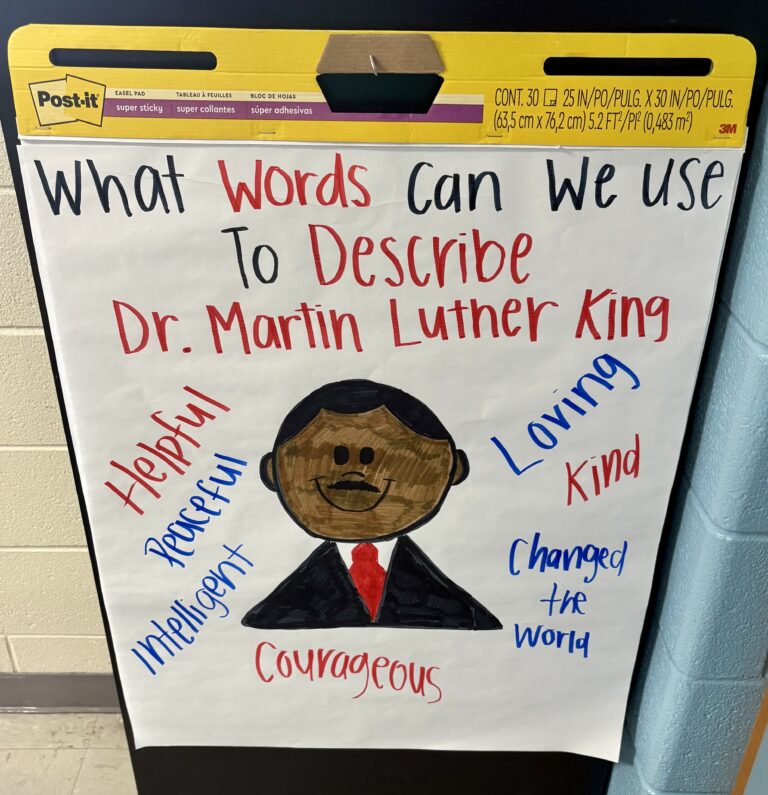 Post-it
EASEL PAD
super sticky
TABLEAU À FEUILLES
super collantes
BLOC DE HOJAS
súper adhesivas
CONT. 30 25 IN/PO/PULG. X 30 IN/PO/PULG.
(63,5 cm x 76,2 cm) 5.2 FT²/PI² (0,483 m²)
3M
What Words Can We use
To Describe
Dr. Martin Luther King
Helpful
Peaceful
Intelligent
Loving
Kind
Changed
the
World
Courageous